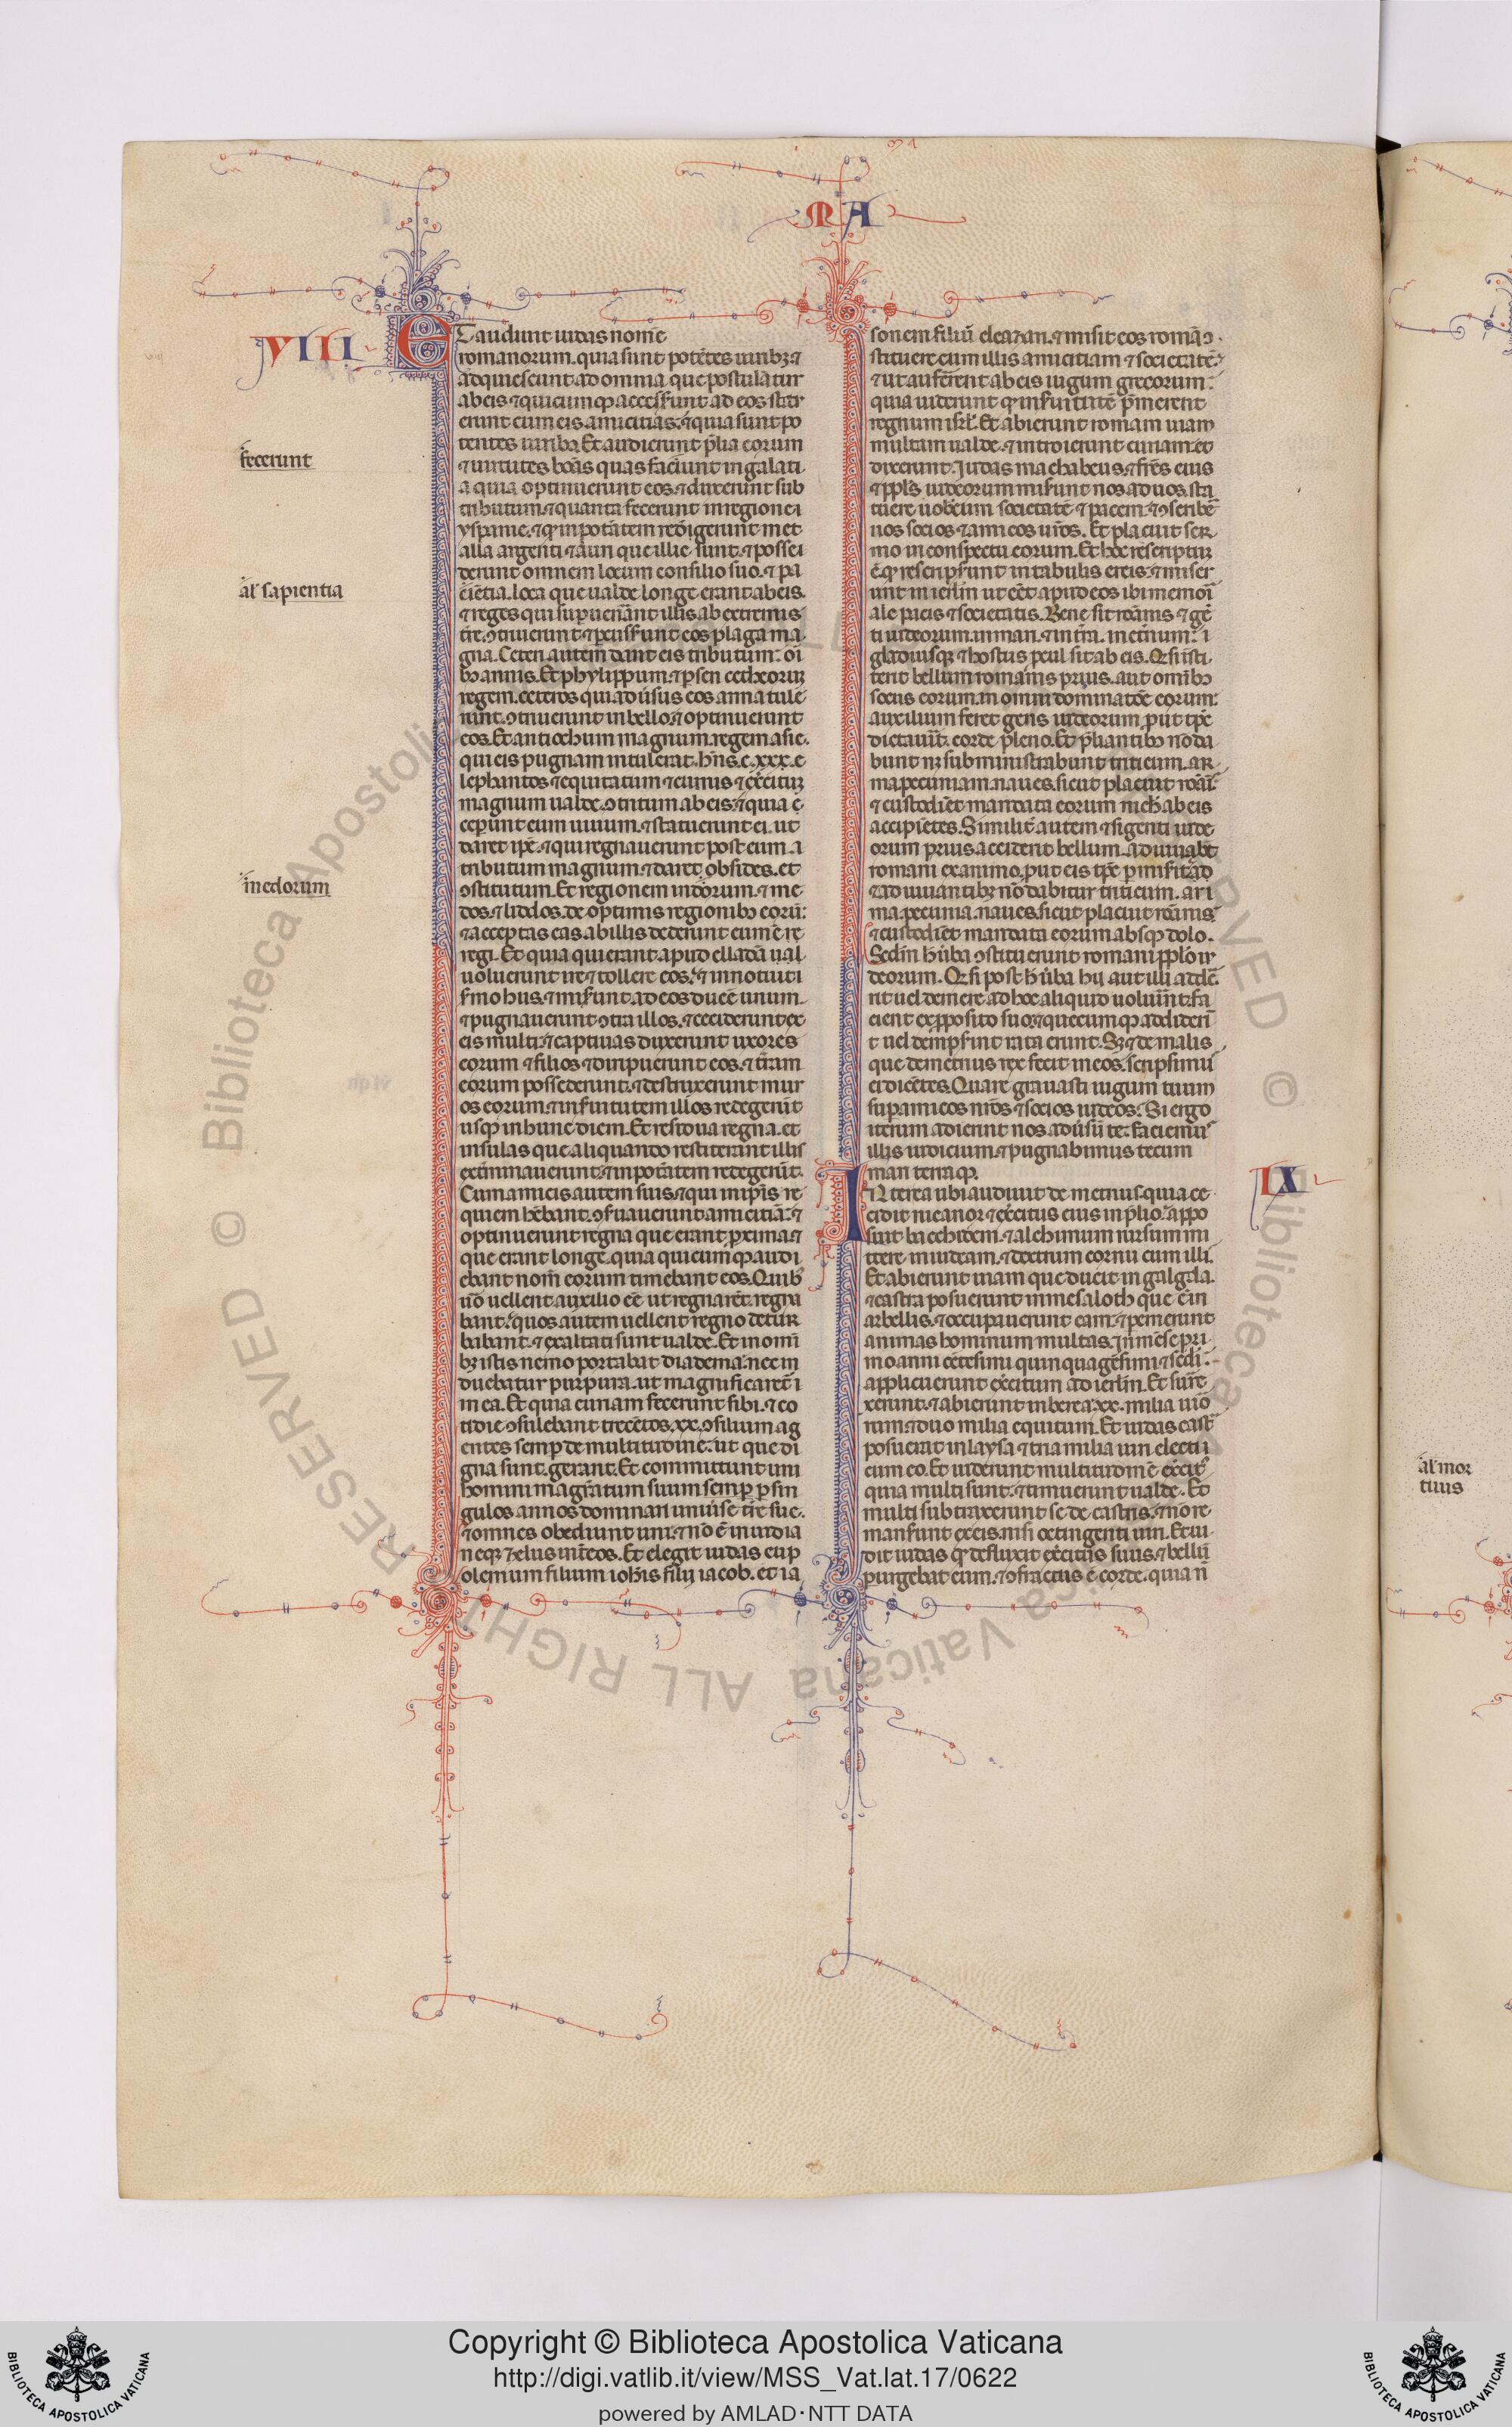 MA
VIII
ET audiuit iudas nomē
romanorum. quia sunt potētes uiribꝫ ⁊
adquiescunt ad omnia que postulantur
ab eis ⁊ quicunqꝫ accesserunt ad eos stat
erunt cum eis amicitias. ⁊ quia sunt po
tentes uiribꝫ Et audierunt p̄lia eorum
⁊ uirtutes bonas quas faciunt in galati
a quia optinuerunt eos. ⁊ duxerunt sub
tributum. ⁊ quanta fecerunt in regione i
yspanie. ⁊ qꝫ in potātem redigerunt met
alla argenti ⁊ auri que illic sunt. ⁊ posse
derunt omnem locum consilio suo. ⁊ pa
ciētia. loca que ualde longe erant ab eis.
⁊ reges qui supuenerāt illis ab extremis
tr̄e. ꝯtriuerunt ⁊ pcusserunt eos plaga ma
gna. Ceteri autem dant eis tributum. oī
bꝫ annis. Et phylippum. ⁊ psen cetheoruꝫ
regem. ceteros qui adūsus eos arma tule
runt. ꝯtriuerunt in bello. ⁊ optinuerunt
eos. Et antiochum magnum. regem asie.
qui eis pugnam intulerat. hn̄s. c. xxx. e
lephantos ⁊ equitatum ⁊ currus ⁊ exercituꝫ
magnum ualde. ꝯtritum ab eis. ⁊ quia c
eperunt eum uiuum. ⁊ statuerunt ei. ut
daret ip̄e. ⁊ qui regnauerunt post eum. a
tributum magnum. ⁊ daret obsides. et
ꝯstitutum. Et regionem indorum. ⁊ me
dos. ⁊ liddos. de optimis regionibꝫ eorū.
⁊ acceptas eas ab illis dederunt eumē re
regi. Et quia qui erant apud elladā ual
uoluerunt ire ⁊ tollere eos. ⁊ innotuit i
sermo hus. ⁊ miserunt ad eos ducē unum.
⁊ pugnauerunt ꝯtra illos. ⁊ ceciderunt ex
eis multi. ⁊ captiuas duxerunt uxores
eorum ⁊ filios ⁊ diripuerunt eos. ⁊ tr̄am
eorum possederunt. ⁊ destruxerunt mur
os eorum. ⁊ in seruitutem illos redegerūt
usqꝫ in hunc diem. Et residua regna. et
insulas que aliquando restiterant illis
exterminauerunt. ⁊ in potātem redegerūt.
Cum amicis autem suis. ⁊ qui in ipīs re
quiem hēbant. ꝯseruauerunt amicitiā. ⁊
optinuerunt regna que erant proxima ⁊
que erant longe. quia quicumqꝫ audi
ebant nom̄ eorum timebant eos. Quibꝫ
uō uellent auxilio eē ut regnarēt. regna
bant. quos autem uellent regno detur
babant. ⁊ exaltati sunt ualde. Et in omī
bꝫ istis nemo portabat diadema. nec in
duebatur purpura. ut magnificaret̄ i
in ea. Et quia curiam fecerunt sibi. ⁊ co
tidie ꝯsulebant trecētos. xx. ꝯsilium ag
entes semp de multitudine. ut que di
gna sunt. gerant. Et committunt uni
homini magr̄atum suum semp p sin
gulos annos dominari uniūse tr̄e sue.
⁊ omnes obediunt uni. ⁊ nō ē inuidia
neqꝫ ⁊ elus int̄ eos. Et elegit iudas eup
olemum filium iohīs filij iacob. et ia
fecerunt
al' sapientia
medorum
sonem filiū eleazari. ⁊ misit eos romā ꝯ
stituere cum illis amicitiam ⁊ societatē.
⁊ ut auferent ab eis iugum grecorum.
quia uiderunt qꝫ in seruitutē p̄merent
regnum isrl̄. Et abierunt romam uiam
multam ualde. ⁊ introierunt curiam. et
dixerunt. Iudas machabeus. ⁊ frēs eius
⁊ ppl̄s iudeorum miserunt nos ad uos. sta
tuere uobiscum societatē ⁊ pacem. ⁊ ꝯscribē
nos socios ⁊ amicos ur̄os. Et placuit ser
mo in conspectu eorum. Et hoc rescriptuꝫ
ē qꝫ rescripserunt in tabulis ereis. ⁊ miser
unt in ierlm̄ ut eēt apud eos ibi memori
ale pacis ⁊ societatis. Bene sit romāis ⁊ gē
ti iudeorum. in mari. ⁊ in tr̄a. in etnum. i
gladiusqꝫ ⁊ hostis pcul sit ab eis. Qꝫ si insti
terit bellum romanis prius. aut omībꝫ
sociis eorum. in omni dominatōe eorum.
auxilium feret gens iudeorum. put tp̄s
dictauit. corde pleno. Et p̄liantibꝫ nō da
bunt nꝫ subministrabunt triticum. ar
ma pecuniam. naues. sicut placuit romā.
⁊ custodiēt mandata eorum nich̄ ab eis
accipiētes. Similit̄ autem ⁊ si genti iude
orum prius acciderit bellum. adiuuabt̄
romani ex animo. put eis tp̄s pmiserit. ad
⁊ adiuuantibꝫ nō dabitur triticum. ar i
ma. pecunia. naues. sicut placuit romāis.
⁊ custodiēt mandata eorum absqꝫ dolo.
Sedm̄ h̄ uba ꝯstituerunt romani ppl̄o iu
deorum. Qꝫ si post h̄ uba hij aut illi addē
re uel demere ad hoc aliquid uoluerint. fa
cient ex pposito suo. ⁊ quecumqꝫ addiderī
t uel dempserint rata erunt. Sꝫ ⁊ de malis
que demetrius rex fecit in eos. scripsimus
ei dicētes. Quare grauasti iugum tuum
sup amicos nr̄os ⁊ socios iudeos. Si ergo
iterum adierint nos adūsū te. faciemus
illis iudicium. ⁊ pugnabimus tecum
mari terraqꝫ.
IX
INterea ubi audiuit demetrius. quia ce
cidit nicanor ⁊ exercitus eius in p̄lio. appo
suit bacchidem. ⁊ alchimum rursum mi
ttere in iudeam. ⁊ dextrum cornu cum illi.
Et abierunt uiam que ducit in galgala.
⁊ castra posuerunt in mesaloth que ē in
arbellis. ⁊ occupauerunt eam. ⁊ pemerunt
animas hominum multas. In mēse pri
mo anni cētesimi quinquagesimi ⁊ sedi.
applicuerunt exercitum ad ierlm̄. Et surre
xerunt. ⁊ abierunt in berea. xx. milia uiro
rum. ⁊ duo milia equitum. Et iudas cast̄
posuerat in laysa ⁊ tria milia uiri electi i
cum eo. Et uiderunt multitudinē exercit̄
quia multi sunt. ⁊ timuerunt ualde. Et
multi subtraxerunt se de castris. ⁊ nō re
manserunt ex eis. nisi octingenti uiri. Et ui
dit iudas qꝫ defluxit exercitus suus. ⁊ bellū
purgebat eum. ⁊ ꝯfractus ē corde. quia n
al' mor
tuus
Copyright © Biblioteca Apostolica Vaticana
http://digi.vatlib.it/view/MSS_Vat.lat.17/0622
powered by AMLAD·NTT DATA
BIBLIOTECA APOSTOLICA VATICANA
BIBLIOTECA APOSTOLICA VATICANA
© Biblioteca Apostolica Vaticana ALL RIGHTS RESERVED